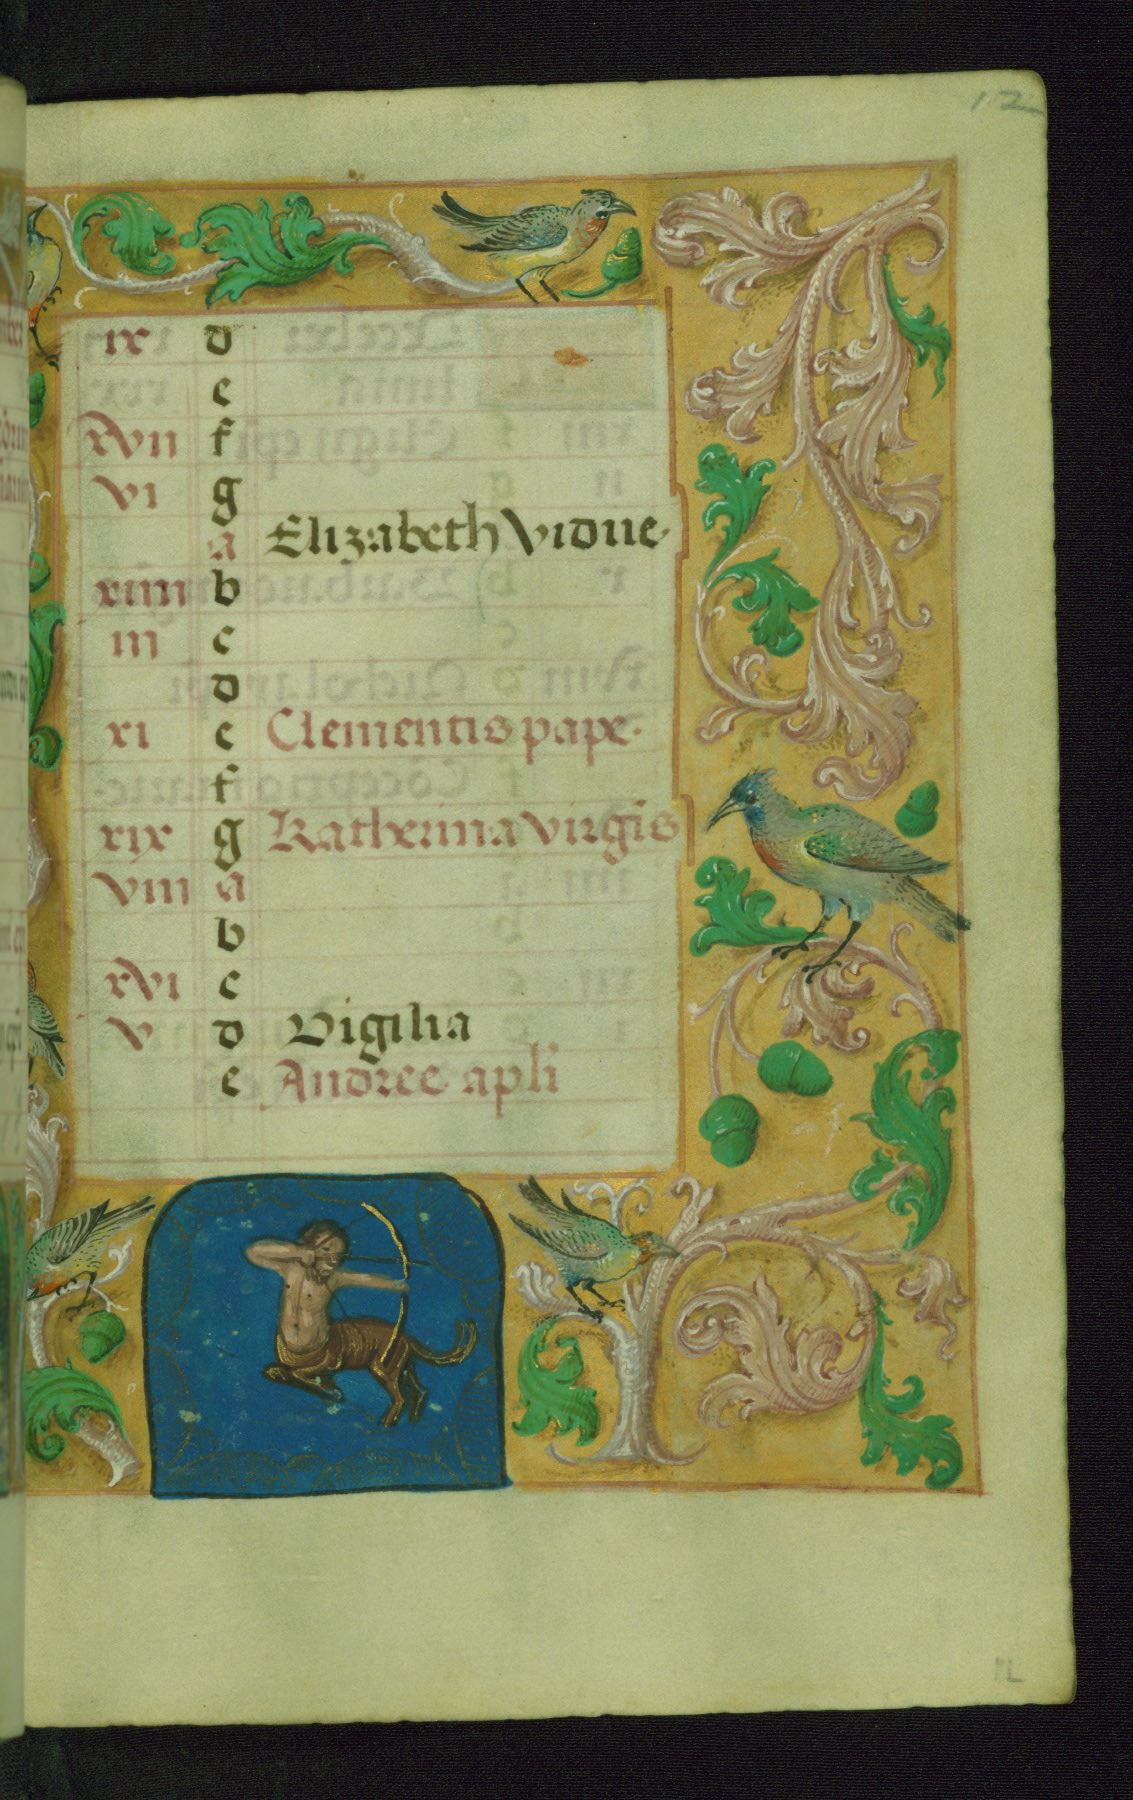 12
ix d
e
xvii f
vi g
a Elizabeth vidue.
xiiii b
iii c
d
xi e Clementis pape.
f
xix g Katherina virgis
viii a
b
xvi c
v d Vigilia
e Andree apli